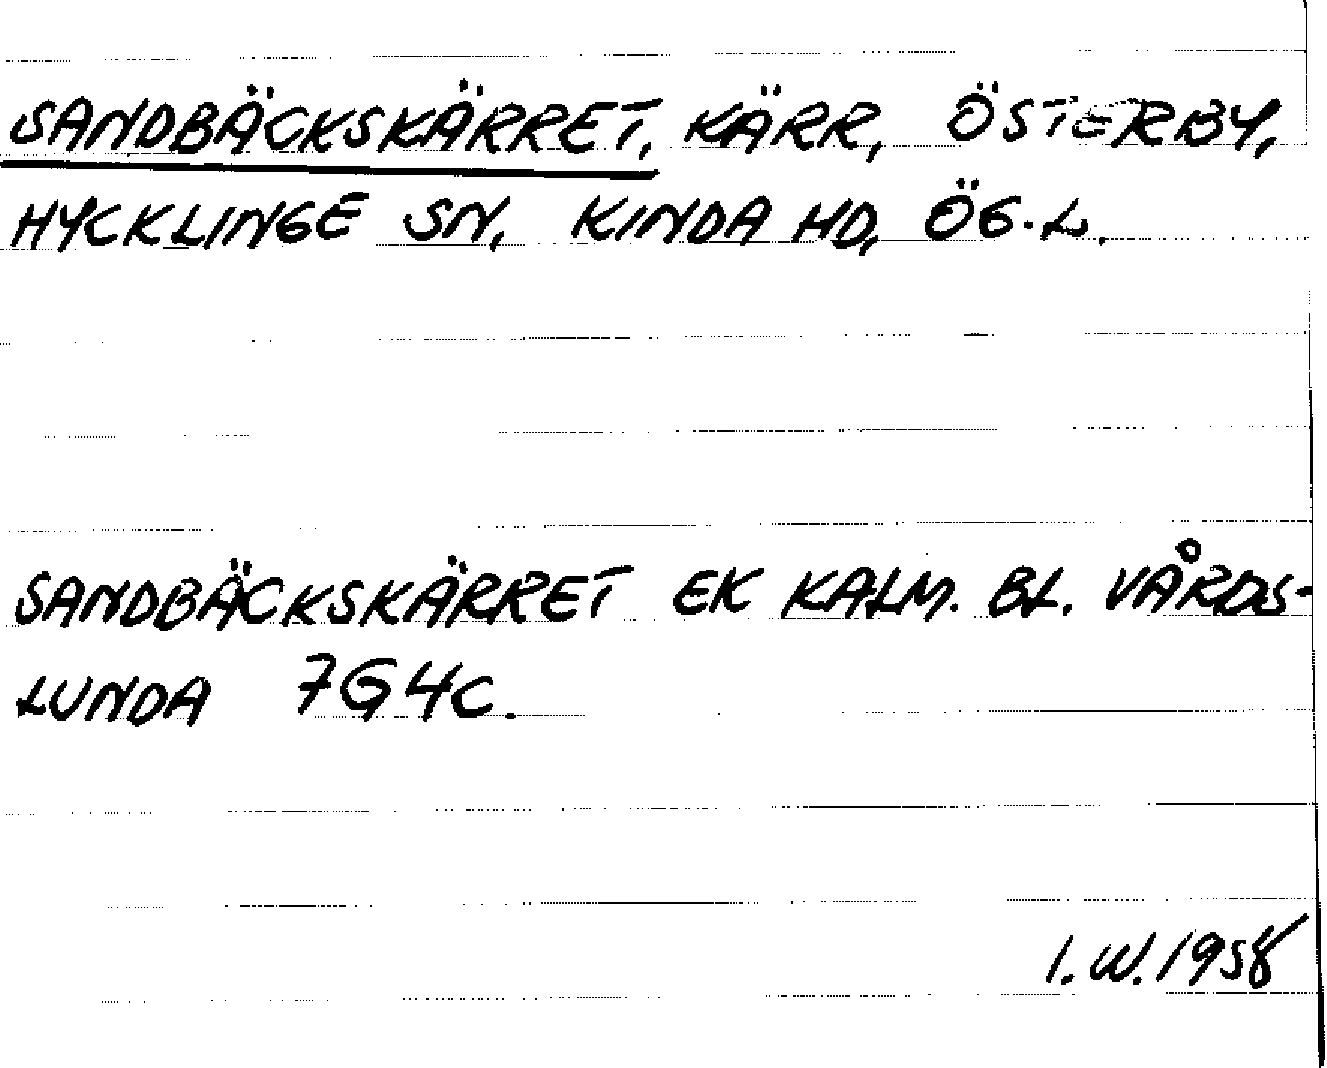 SANDBÄCKSKÄRRET, KÄRR, ÖSTERBY,
HYCKLINGE SN, KINDA HD, ÖG.L.
SANDBÄCKSKÄRRET EK KALM. BL. VÅRDS-
LUNDA 7G4C.
I.W. 1958